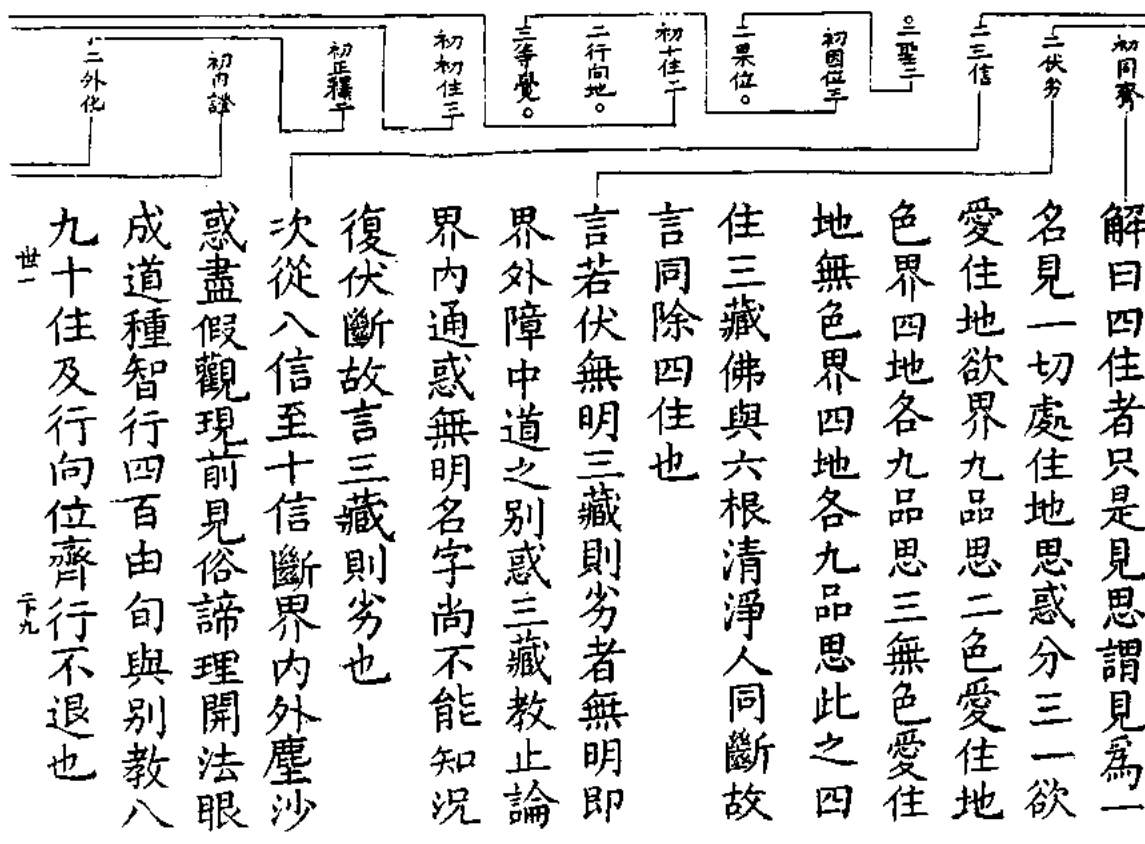 初同齊
二伏劣
二三信
○二聖二
初因位三
二果位○
初十住二
二行向地○
三等覺○
初初住三
初正釋二
初內證
二外化
解曰四住者只是見思謂見為一
名見一切處住地思惑分三一欲
愛住地欲界九品思二色愛住地
色界四地各九品思三無色愛住
地無色界四地各九品思此之四
住三藏佛與六根清淨人同斷故
言同除四住也
言若伏無明三藏則劣者無明即
界外障中道之别惑三藏教止論
界內通惑無明名字尚不能知況
復伏斷故言三藏則劣也
次從八信至十信斷界內外塵沙
惑盡假觀現前見俗諦理開法眼
成道種智行四百由旬與别教八
九十住及行向位齊行不退也
世一
二下九